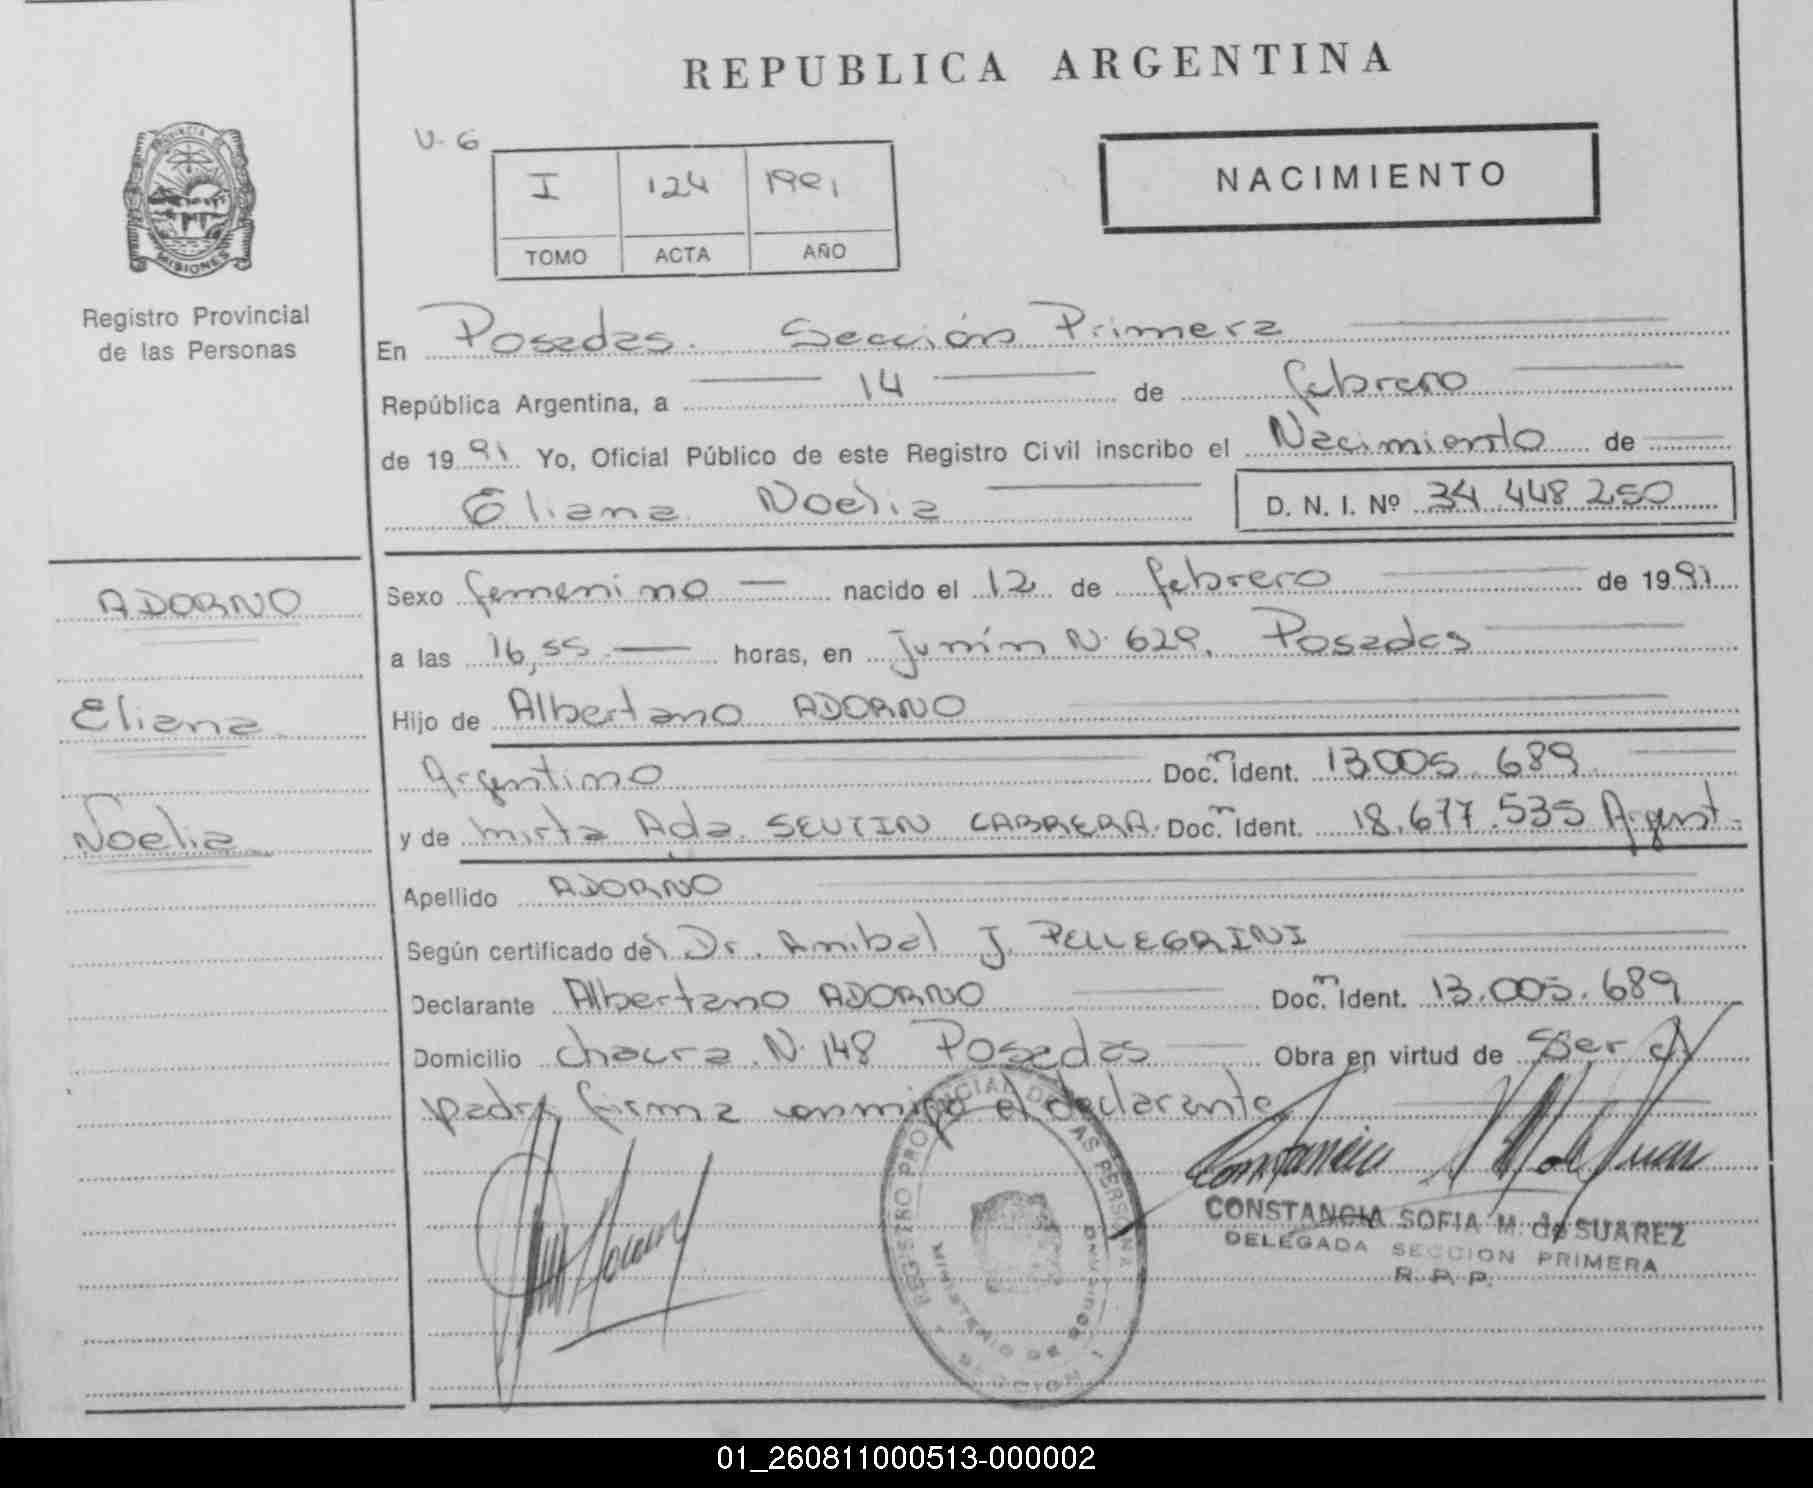 REPUBLICA ARGENTINA
V. 6
I 124 1991
TOMO ACTA AÑO
NACIMIENTO
PROVINCIA DE
MISIONES
Registro Provincial
de las Personas
En Posadas. Sección Primera
República Argentina, a 14 de febrero
de 1991 Yo, Oficial Público de este Registro Civil inscribo el Nacimiento de
Eliana Noelia D. N. I. Nº 34.448.250
ADORNO
Eliana
Noelia
Sexo femenino nacido el 12 de febrero de 1991
a las 16,55 horas, en Junín N. 629, Posadas
Hijo de Albertano ADORNO
Argentino Doc. Ident. 13.005.689
y de Mirta Ada SEUTIN CABRERA. Doc. Ident. 18.677.535 Argent.
Apellido ADORNO
Según certificado del Dr. Anibal J. PELLEGRINI
Declarante Albertano ADORNO Doc. Ident. 13.005.689
Domicilio chacra N. 148 Posadas Obra en virtud de Ser el
padre firma conmigo el declarante
REGISTRO PROVINCIAL DE LAS PERSONAS
MINISTERIO DE GOBIERNO
CONSTANCIA SOFIA M. de SUAREZ
DELEGADA SECCION PRIMERA
R. P. P.
01_260811000513-000002